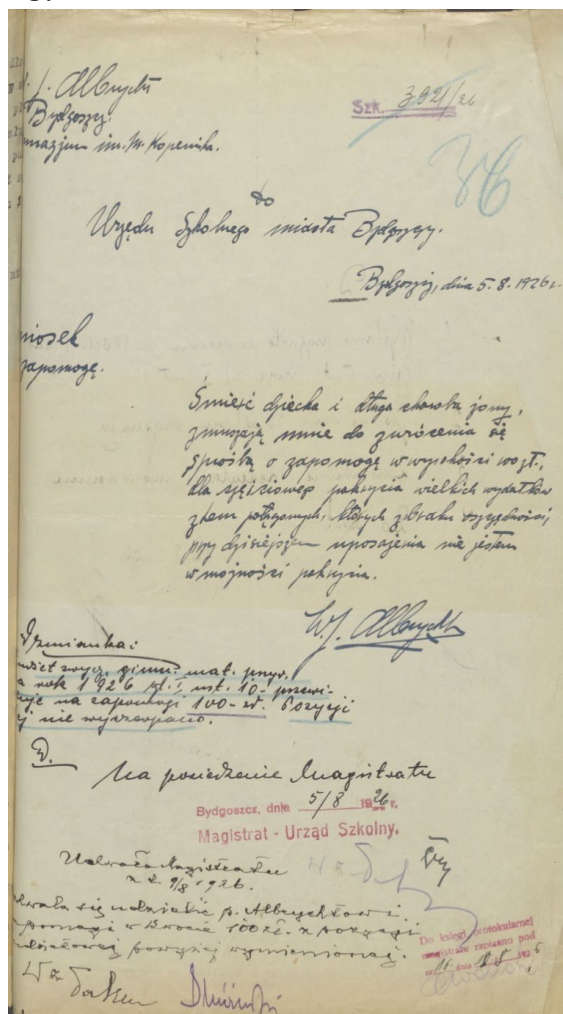 J. Albrycht
Bydgoszcz.
im. M. Kopernika.
Szk. 3921/26
36
Do
Urzędu Szkolnego miasta Bydgoszczy.
Bydgoszcz, dnia 5. 8. 1926 r.
niosek
zapomogę.
Śmierć dziecka i długa choroba żony,
zmuszają mnie do zwrócenia się
z prośbą o zapomogę w wysokości 100 zł.,
dla częściowego pokrycia wielkich wydatków
z tem połączonych, których z braku oszczędności,
przy dzisiejszem uposażeniu nie jestem
w możności pokrycia.
WJ. Albrycht
Wzmianka:
zwycz. gimn. mat. przyr.
a rok 1926 ust. 10- przewi-
duje na zapomogi 100- zł. Pozycji
ej nie wyczerpano.
Na posiedzenie Magistratu
Bydgoszcz, dnia 5/8 1926 r.
Magistrat - Urząd Szkolny.
Uchwała Magistratu
z d. 9/8 1926.
chwala się udzielić p. Albrychtowi
zapomogi w kwocie 100 zł. z pozycji
powyżej wymienionej.
Do księgi protokularnej
magistratu zapisano pod